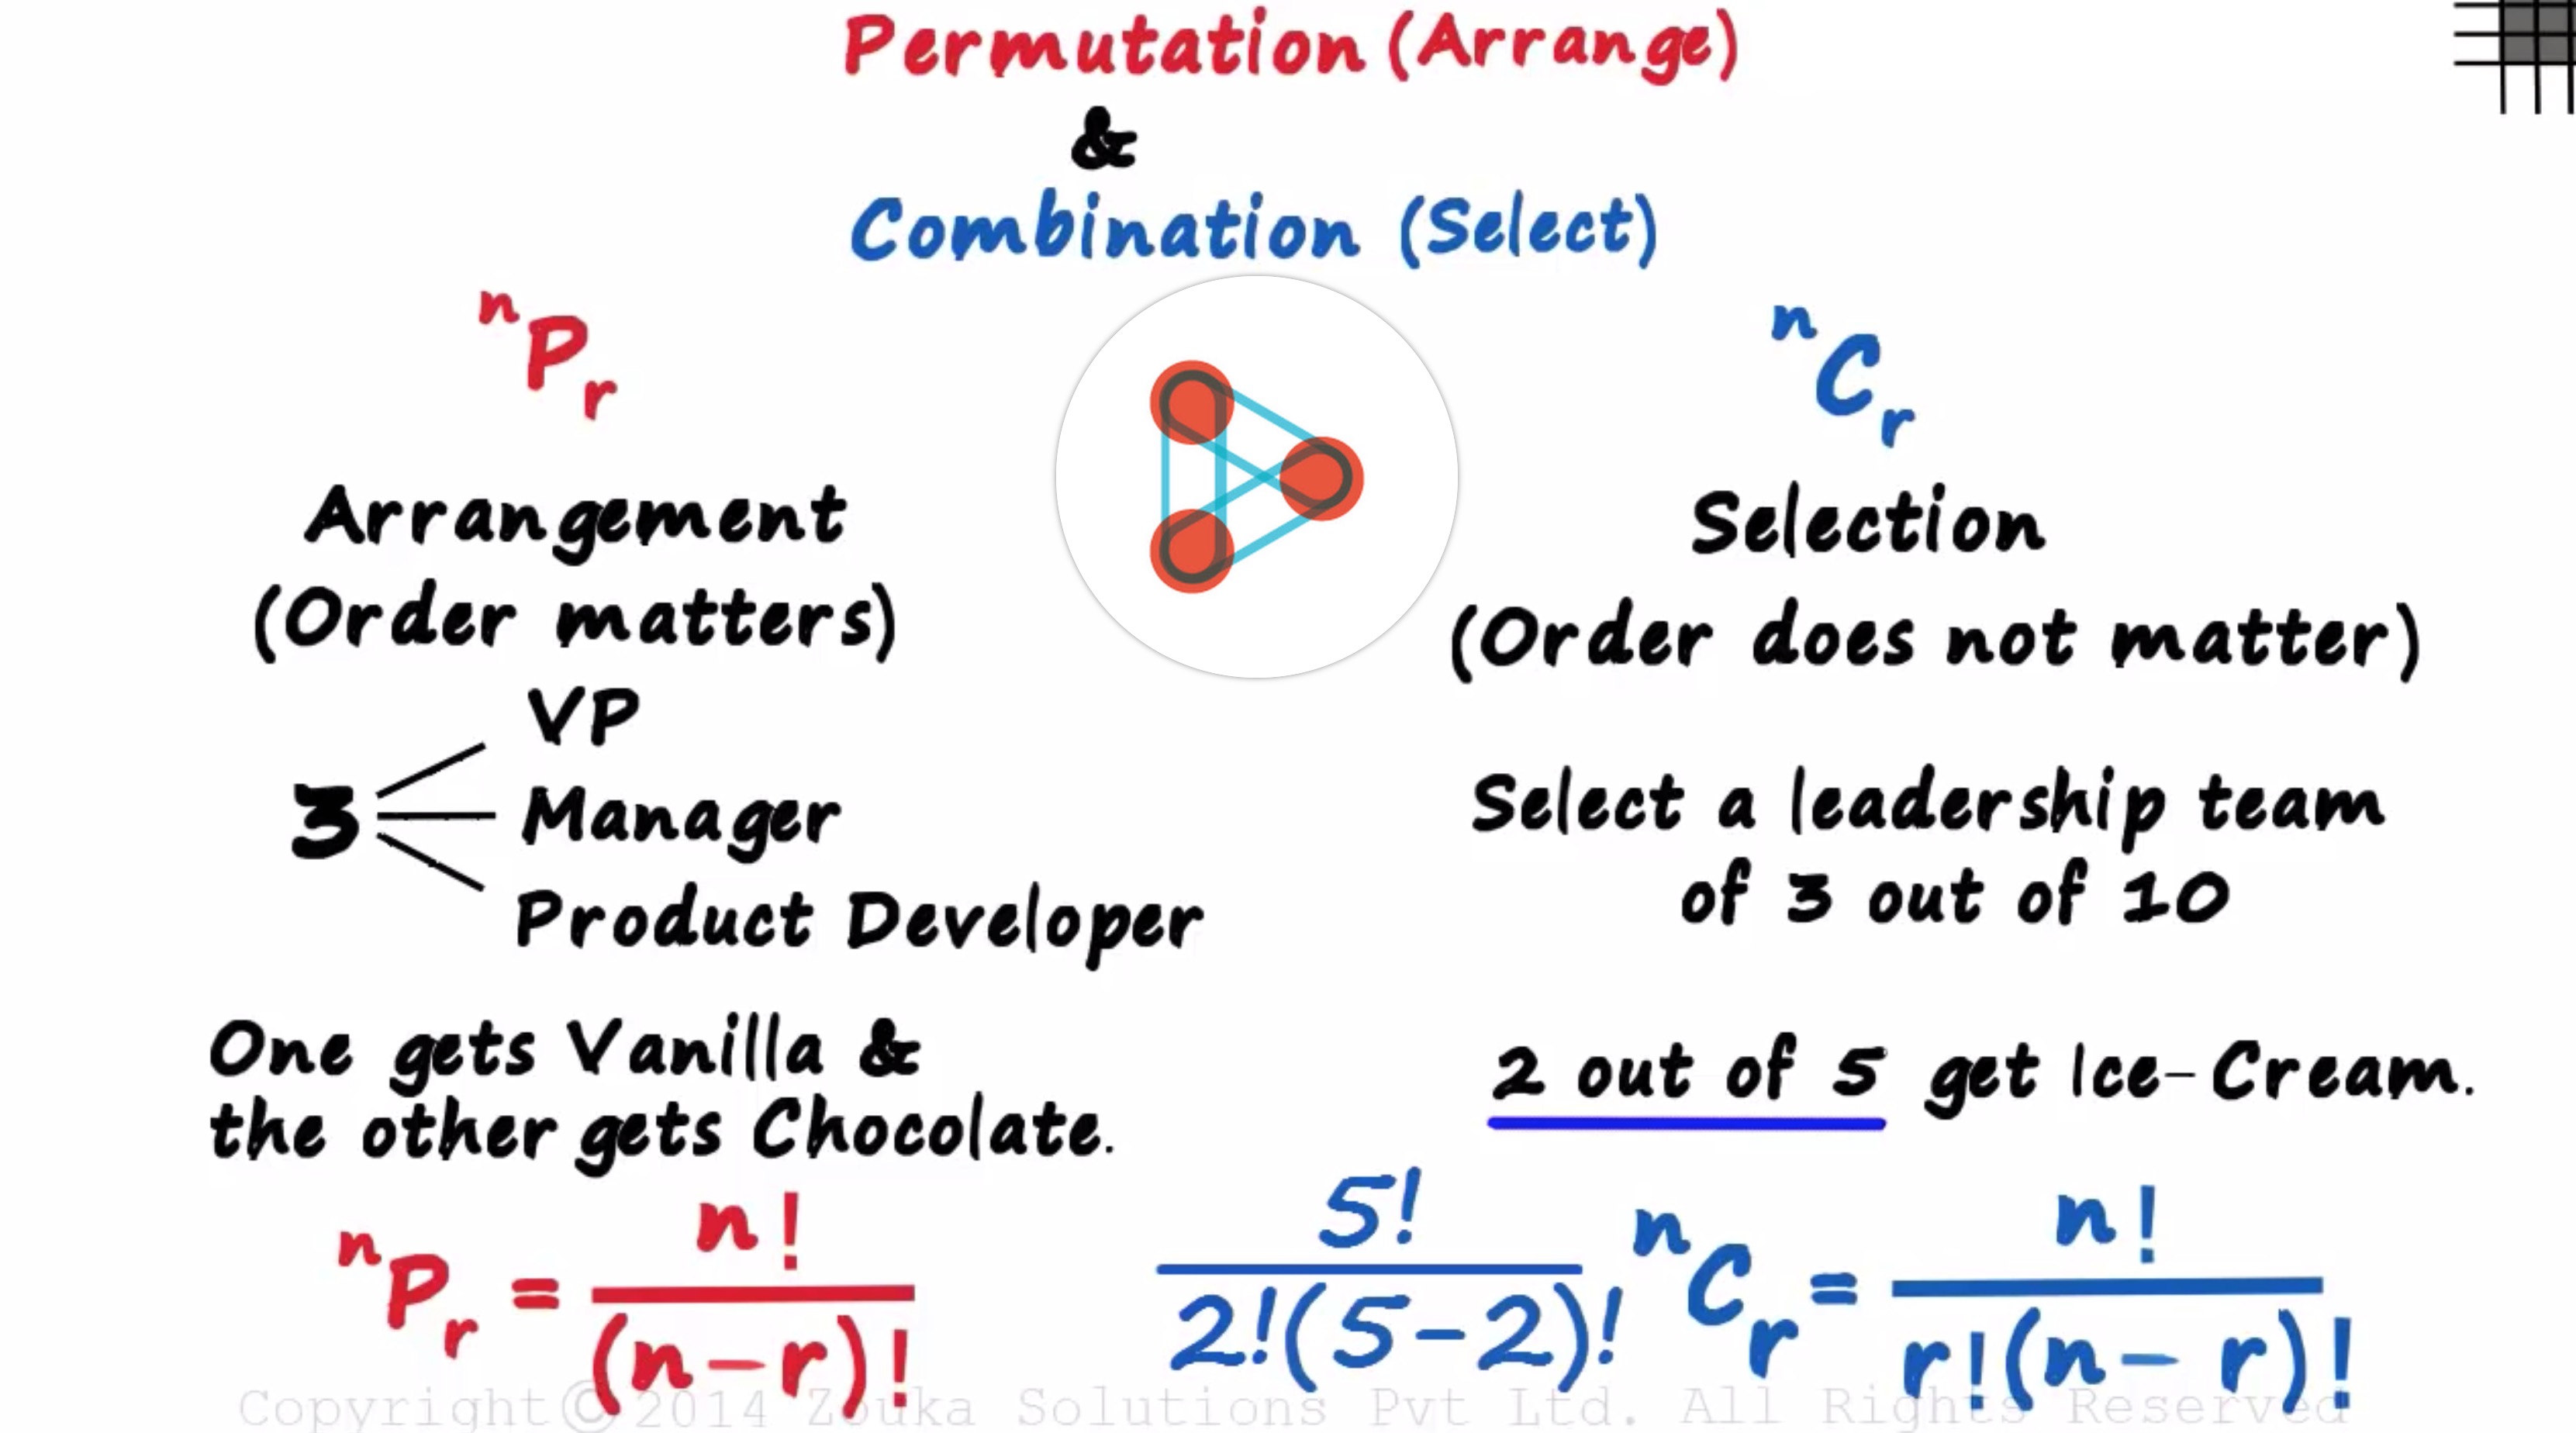 Permutation (Arrange)
&
Combination (Select)
nPr
Arrangement
(Order matters)
3
VP
Manager
Product Developer
One gets Vanilla &
the other gets Chocolate.
nPr = n! / (n-r)!
nCr
Selection
(Order does not matter)
Select a leadership team
of 3 out of 10
2 out of 5 get Ice-Cream.
5! / 2!(5-2)!
nCr = n! / r!(n-r)!
Copyright © 2014 Zouka Solutions Pvt Ltd. All Rights Reserved